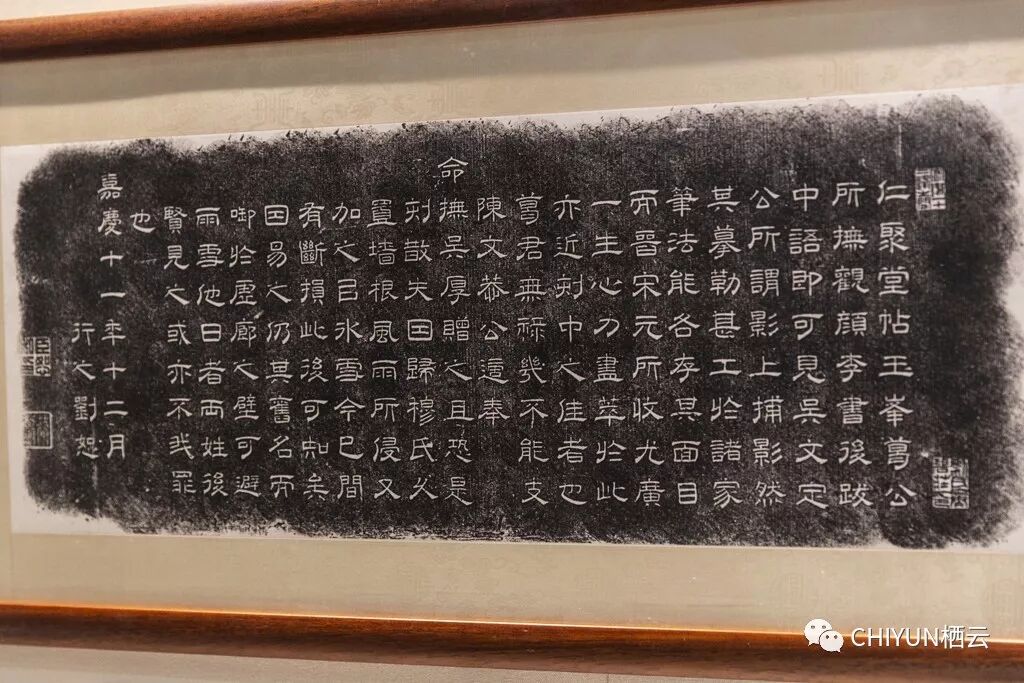 仁聚堂帖玉峯葛公
所撫觀顏李書後跋
中語即可見吳文定
公所謂影上捕影然
其摹勒甚工於諸家
筆法能各存其面目
而晉宋元所收尤廣
一生心力盡萃於此
亦近刻中之佳者也
葛君無祿幾不能支
陳文恭公適奉
命撫吳厚贈之且恐是
刻散失因歸穆氏久
置墻根風雨所侵又
加之以冰雪今已間
有斷損此後可知矣
因易之仍其舊名而
啣於虛廊之壁可避
雨雪他日者兩姓後
賢見之或亦不我罪
也
嘉慶十一年十二月
行之劉恕
CHIYUN栖云